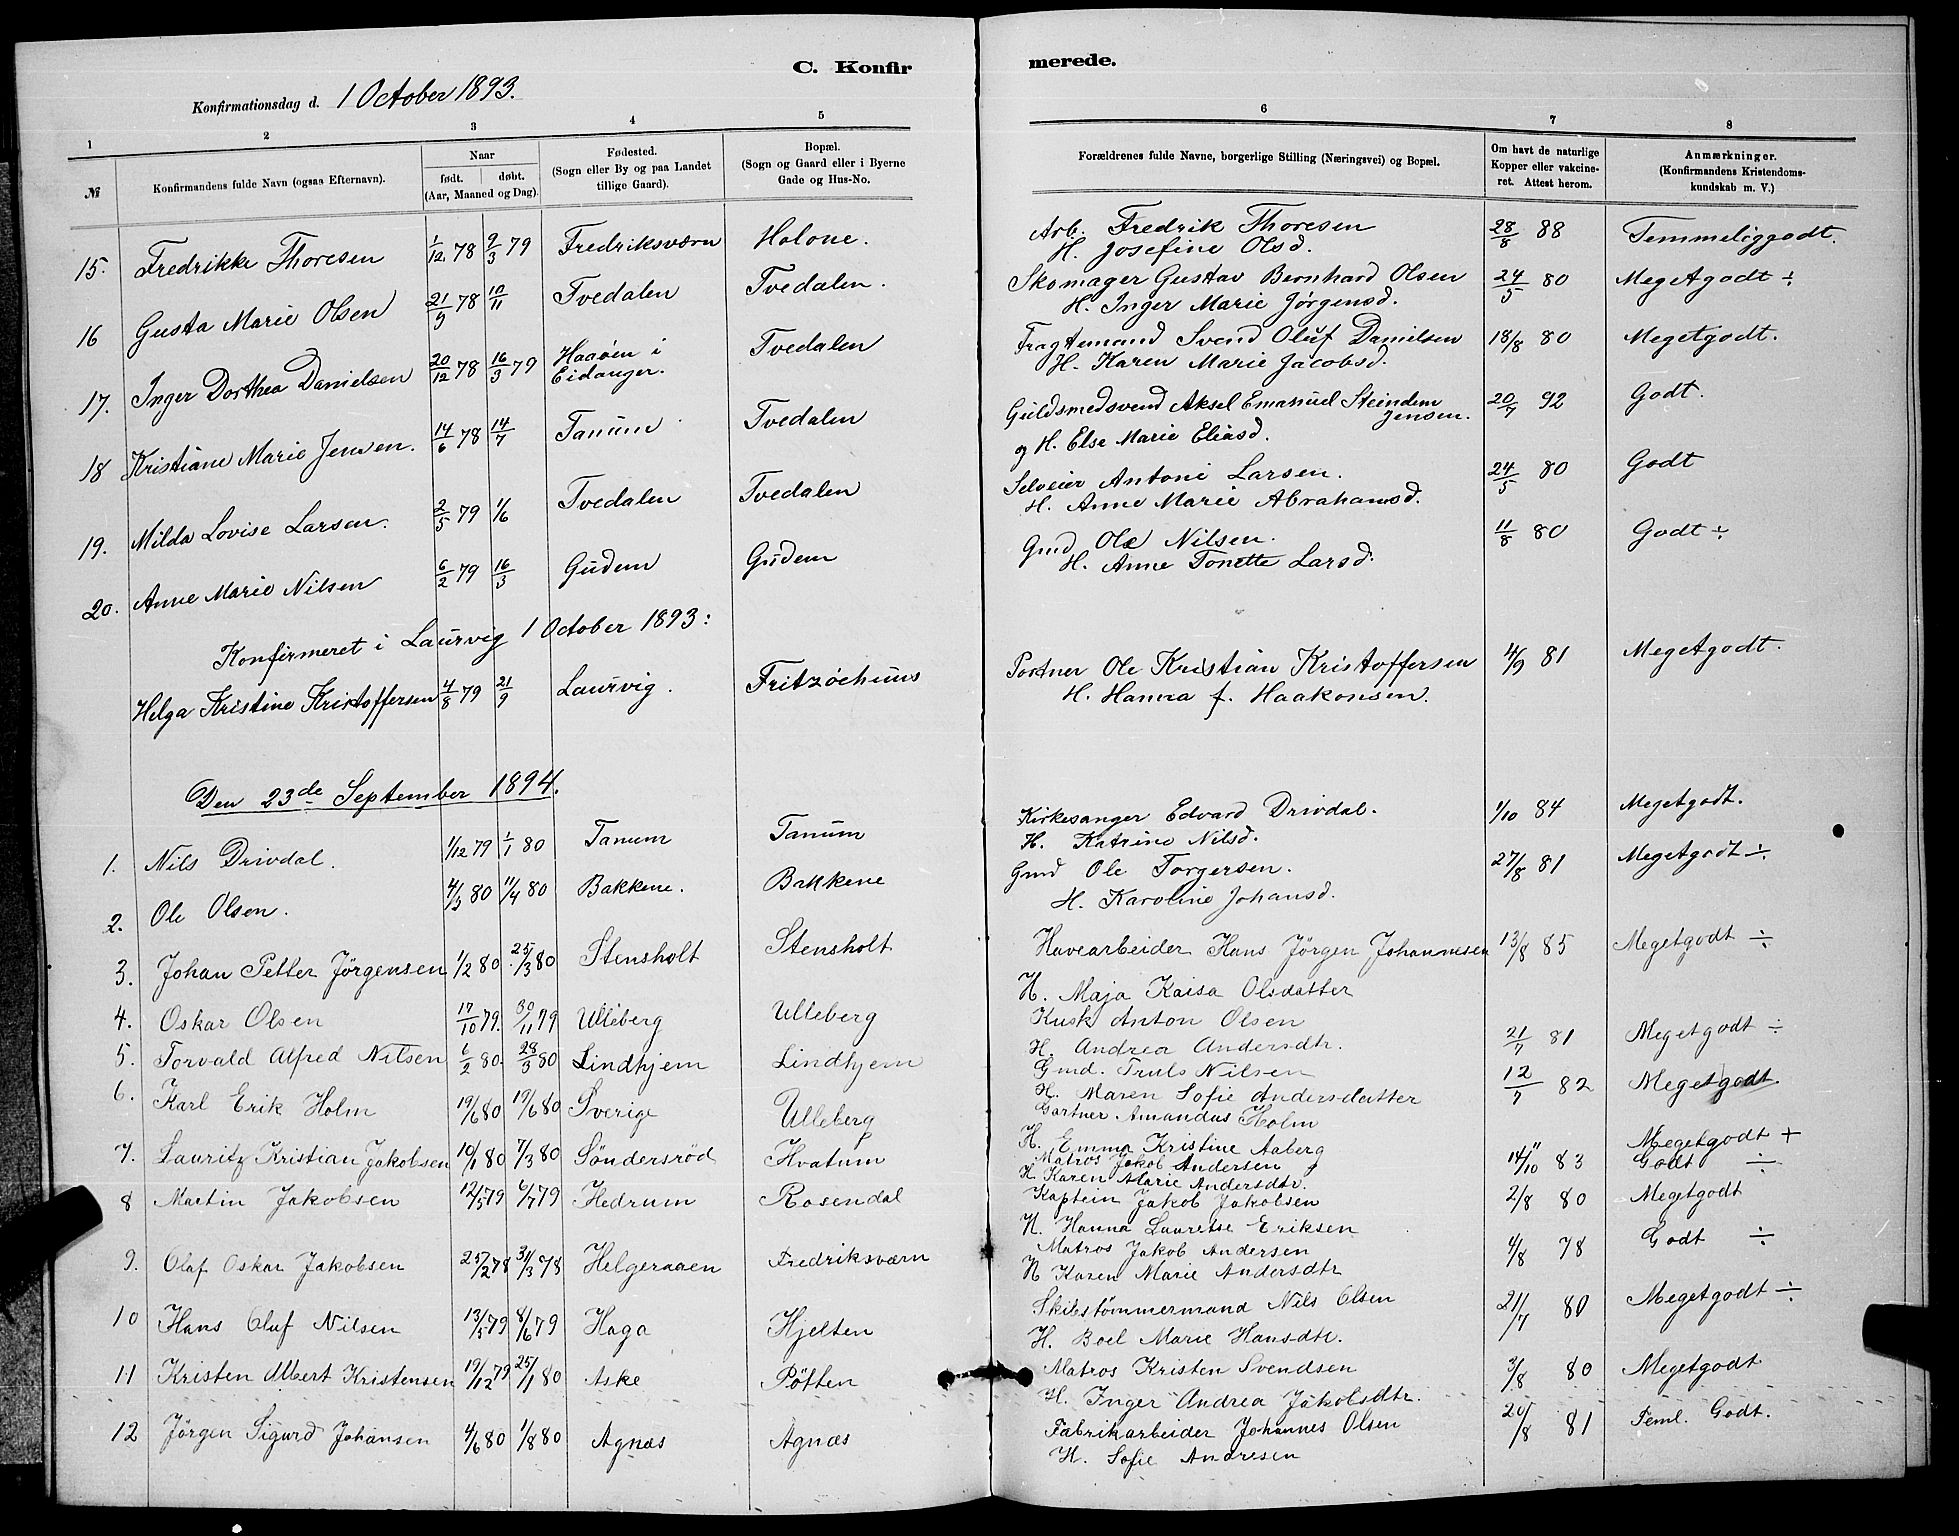 C. Konfirmerede.
Konfirmationsdag d. 1 October 1893.
1 2 3 4 5 6 7 8
№ Konfirmandens fulde Navn (ogsaa Efternavn). Naar født. døbt. (Aar, Maaned og Dag). Fødested. (Sogn eller By og paa Landet tillige Gaard). Bopæl. (Sogn og Gaard eller i Byerne Gade og Hus-No. Forældrenes fulde Navne, borgerlige Stilling (Næringsvei) og Bopæl. Om havt de naturlige Kopper eller vakcineret. Attest herom. Anmærkninger. (Konfirmandens Kristendomskundskab m. V.)
15. Fredrikke Thoresen 1/12 78 9/3 79 Fredriksværn Holone. Arb. Fredrik Thoresen 28/8 88 Temmeliggodt.
H. Josefine Olsd.
16 Gusta Marie Olsen 21/9 78 10/11 Tvedalen Tvedalen. Skomager Gustav Bernhard Olsen 24/5 80 Megetgodt ÷
H. Inger Marie Jørgensd.
17. Inger Dorthea Danielsen 20/12 78 16/3 79 Haaøen i Eidanger. Tvedalen Fragtemand Svend Oluf Danielsen 18/8 80 Megetgodt.
H. Karen Marie Jacobsd.
18 Kristiane Marie Jensen. 14/6 78 14/7 Tanum Tvedalen Guldsmedsvend Aksel Emanuel Steindem Jensen. 20/7 92 Godt.
og H. Else Marie Eliasd.
19. Milda Lovise Larsen. 2/5 79 1/6 Tvedalen Tvedalen Selveier Antoni Larsen. 24/5 80 Godt
H. Anne Marie Abrahamsd.
20. Anne Marie Nilsen 6/2 79 16/3 Gudem Gudem Gmd Ole Nilsen. 11/8 80 Godt ÷
H. Anne Tonette Larsd.
Konfirmeret i Laurvig 1 October 1893:
Helga Kristine Kristoffersen 4/8 79 21/9 Laurvig. Fritzøehuus Portner Ole Kristian Kristoffersen 4/9 81 Megetgodt.
H. Hanna f. Haakonsen.
Den 23de September 1894.
1. Nils Drivdal. 1/12 79 1/1 80 Tanum Tanum Kirkesanger Edvard Drivdal. 1/10 84 Megetgodt.
H. Katrine Nilsd.
2. Ole Olsen. 4/3 80 11/4 80 Bakkene. Bakkene Gmd Ole Torgersen. 27/8 81 Megetgodt ÷
H. Karoline Johansd.
3. Johan Petter Jørgensen 1/2 80 25/3 80 Stensholt Stensholt Havearbeider Hans Jörgen Johannesen 13/8 85 Megetgodt ÷
H. Maja Kaisa Olsdatter
4. Oskar Olsen 17/10 79. 30/11 79 Ulleberg Ulleberg Kusk Anton Olsen 21/7 81 Megetgodt ÷
H. Andrea Andersdtr.
5. Torvald Alfred Nilsen 6/2 80. 28/3 80 Lindhjem Lindhjem Gmd. Truls Nilsen 12/7 82 Megetgodt.
H. Maren Sofie Andersdatter
6. Karl Erik Holm 19/6 80 19/6 80 Sverige Ulleberg Gartner Amandus Holm " Megetgodt +
H. Emma Kristine Aaberg
7. Lauritz Kristian Jakobsen 10/1 80 7/3 80 Söndersröd Hvatum Matros Jakob Andersen 14/10 83 Godt ÷
H. Karen Marie Andersdtr.
8 Martin Jakobsen 12/5 79 6/7 79 Hedrum Rosendal Kaptein Jakob Jakobsen 2/8 80 Megetgodt
H. Hanna Lauretse Eriksen
9. Olaf Oskar Jakobsen 25/2 78 31/3 78 Helgeraaen Fredriksværn Matros Jakob Andersen 4/8 78 Godt ÷
H Karen Marie Andersdtr
10 Hans Oluf Nilsen 13/5 79 8/6 79 Haga Hjelten Skibstømmermand Nils Olsen 21/7 80 Megetgodt ÷
H. Boel Marie Hansdtr.
11 Kristen Albert Kristensen 19/12 79 25/1 80 Aske Pötten Matros Kristen Svendsen 3/8 80 Megetgodt
H. Inger Andrea Jakobsdtr.
12 Jörgen Sigurd Johansen 4/6 80 1/8 80 Agnæs Agnæs Fabrikarbeider Johannes Olsen 20/8 81 Teml. Godt.
H. Sofie Andresen